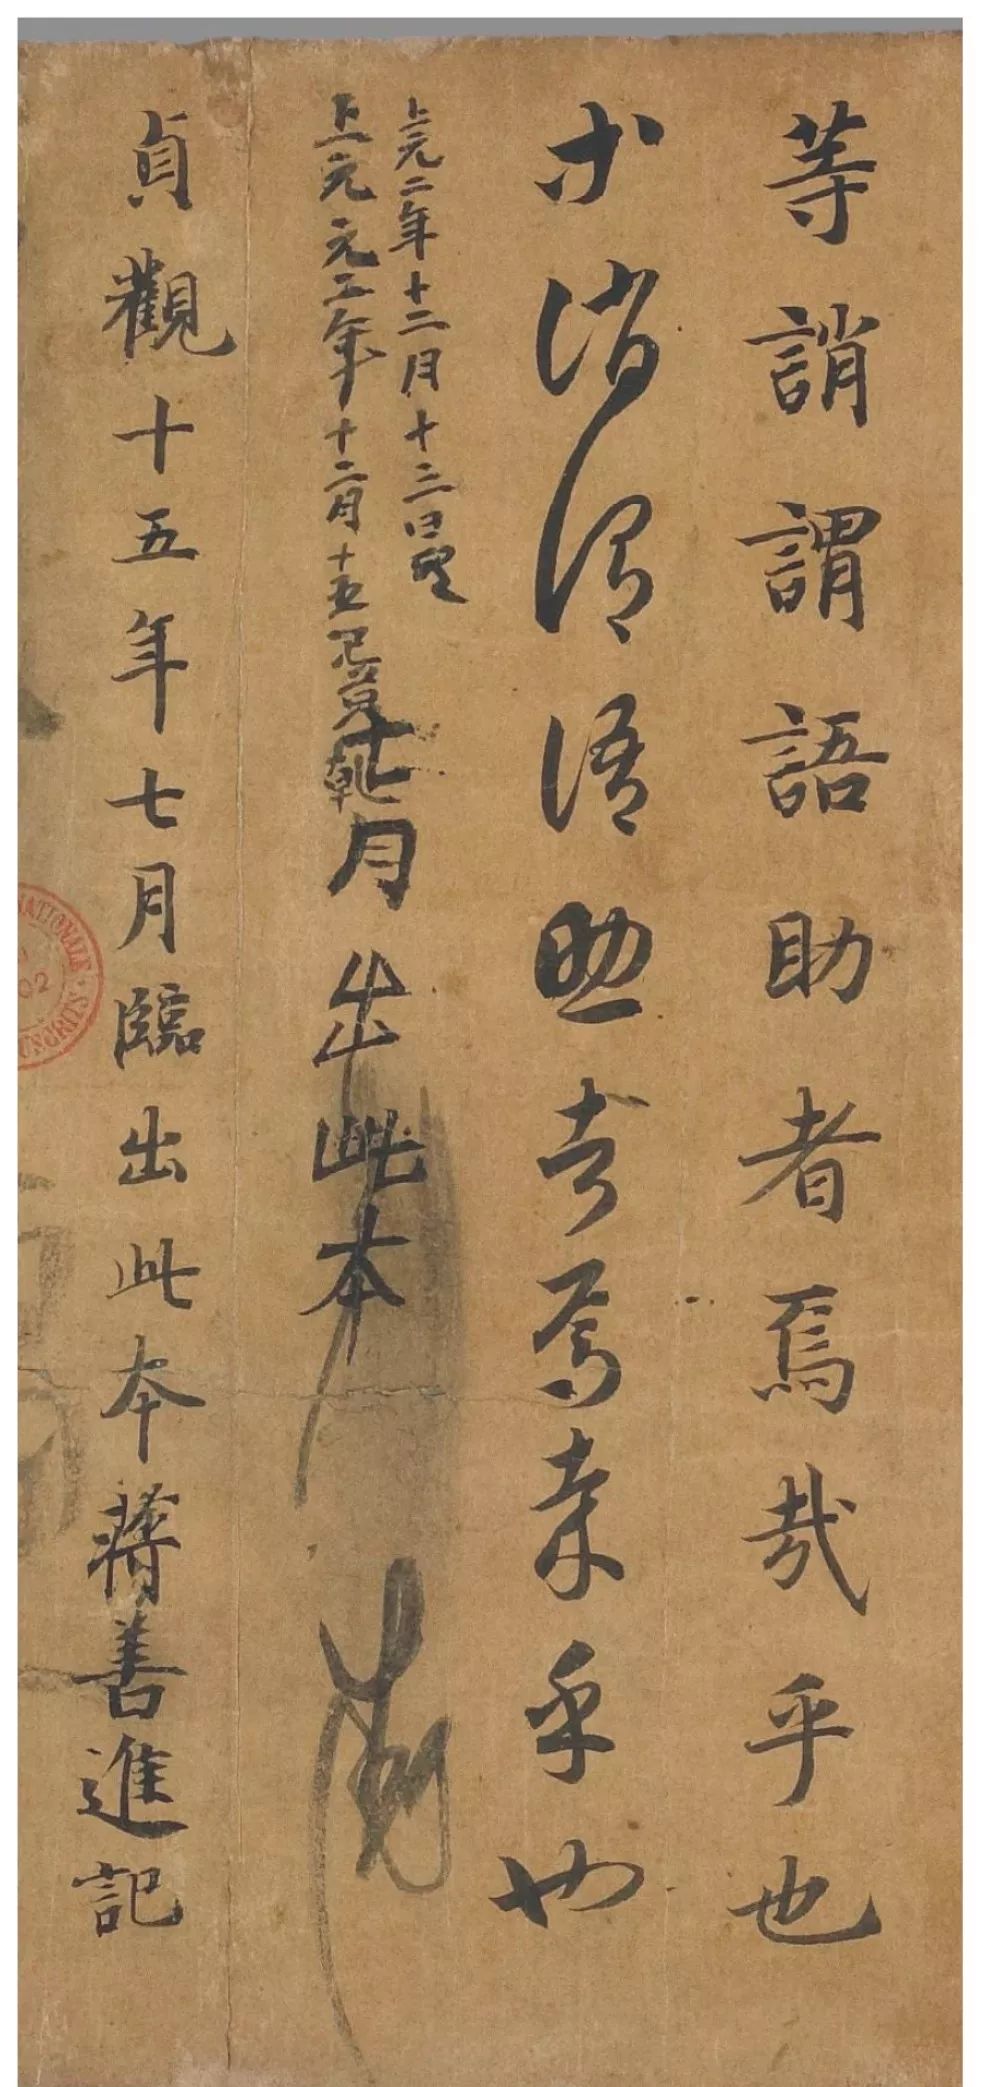 等誚謂語助者焉哉乎也
等誚謂語助者焉哉乎也
上元二年十二月十三日
上元元二年年十二月十五
七月出此本
貞觀十五年七月臨出此本蔣善進記
NATIONALE